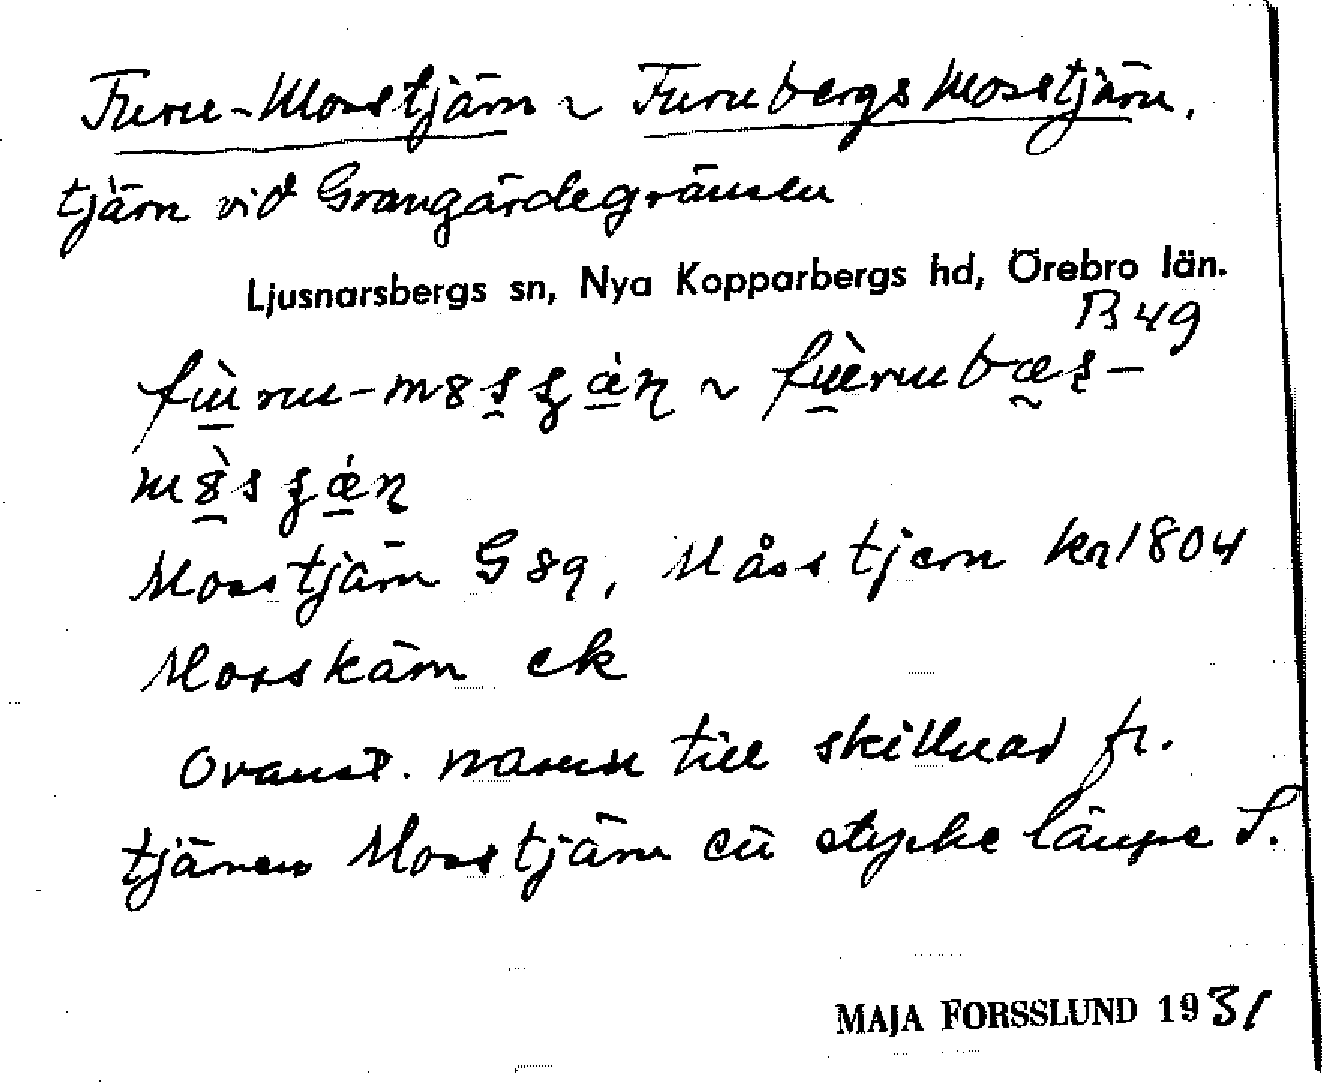 Furu-Mosstjärn ~ Furubergs Mosstjärn,
tjärn vid Grangärdegränsen
Ljusnarsbergs sn, Nya Kopparbergs hd, Örebro län.
B 49
Mosstjärn G 89, Måsstjern kn 1804
Mosskärn ek
Ovanst. namn till skillnad fr.
tjärnen Mosstjärn ett stycke längre S.
MAJA FORSSLUND 1931